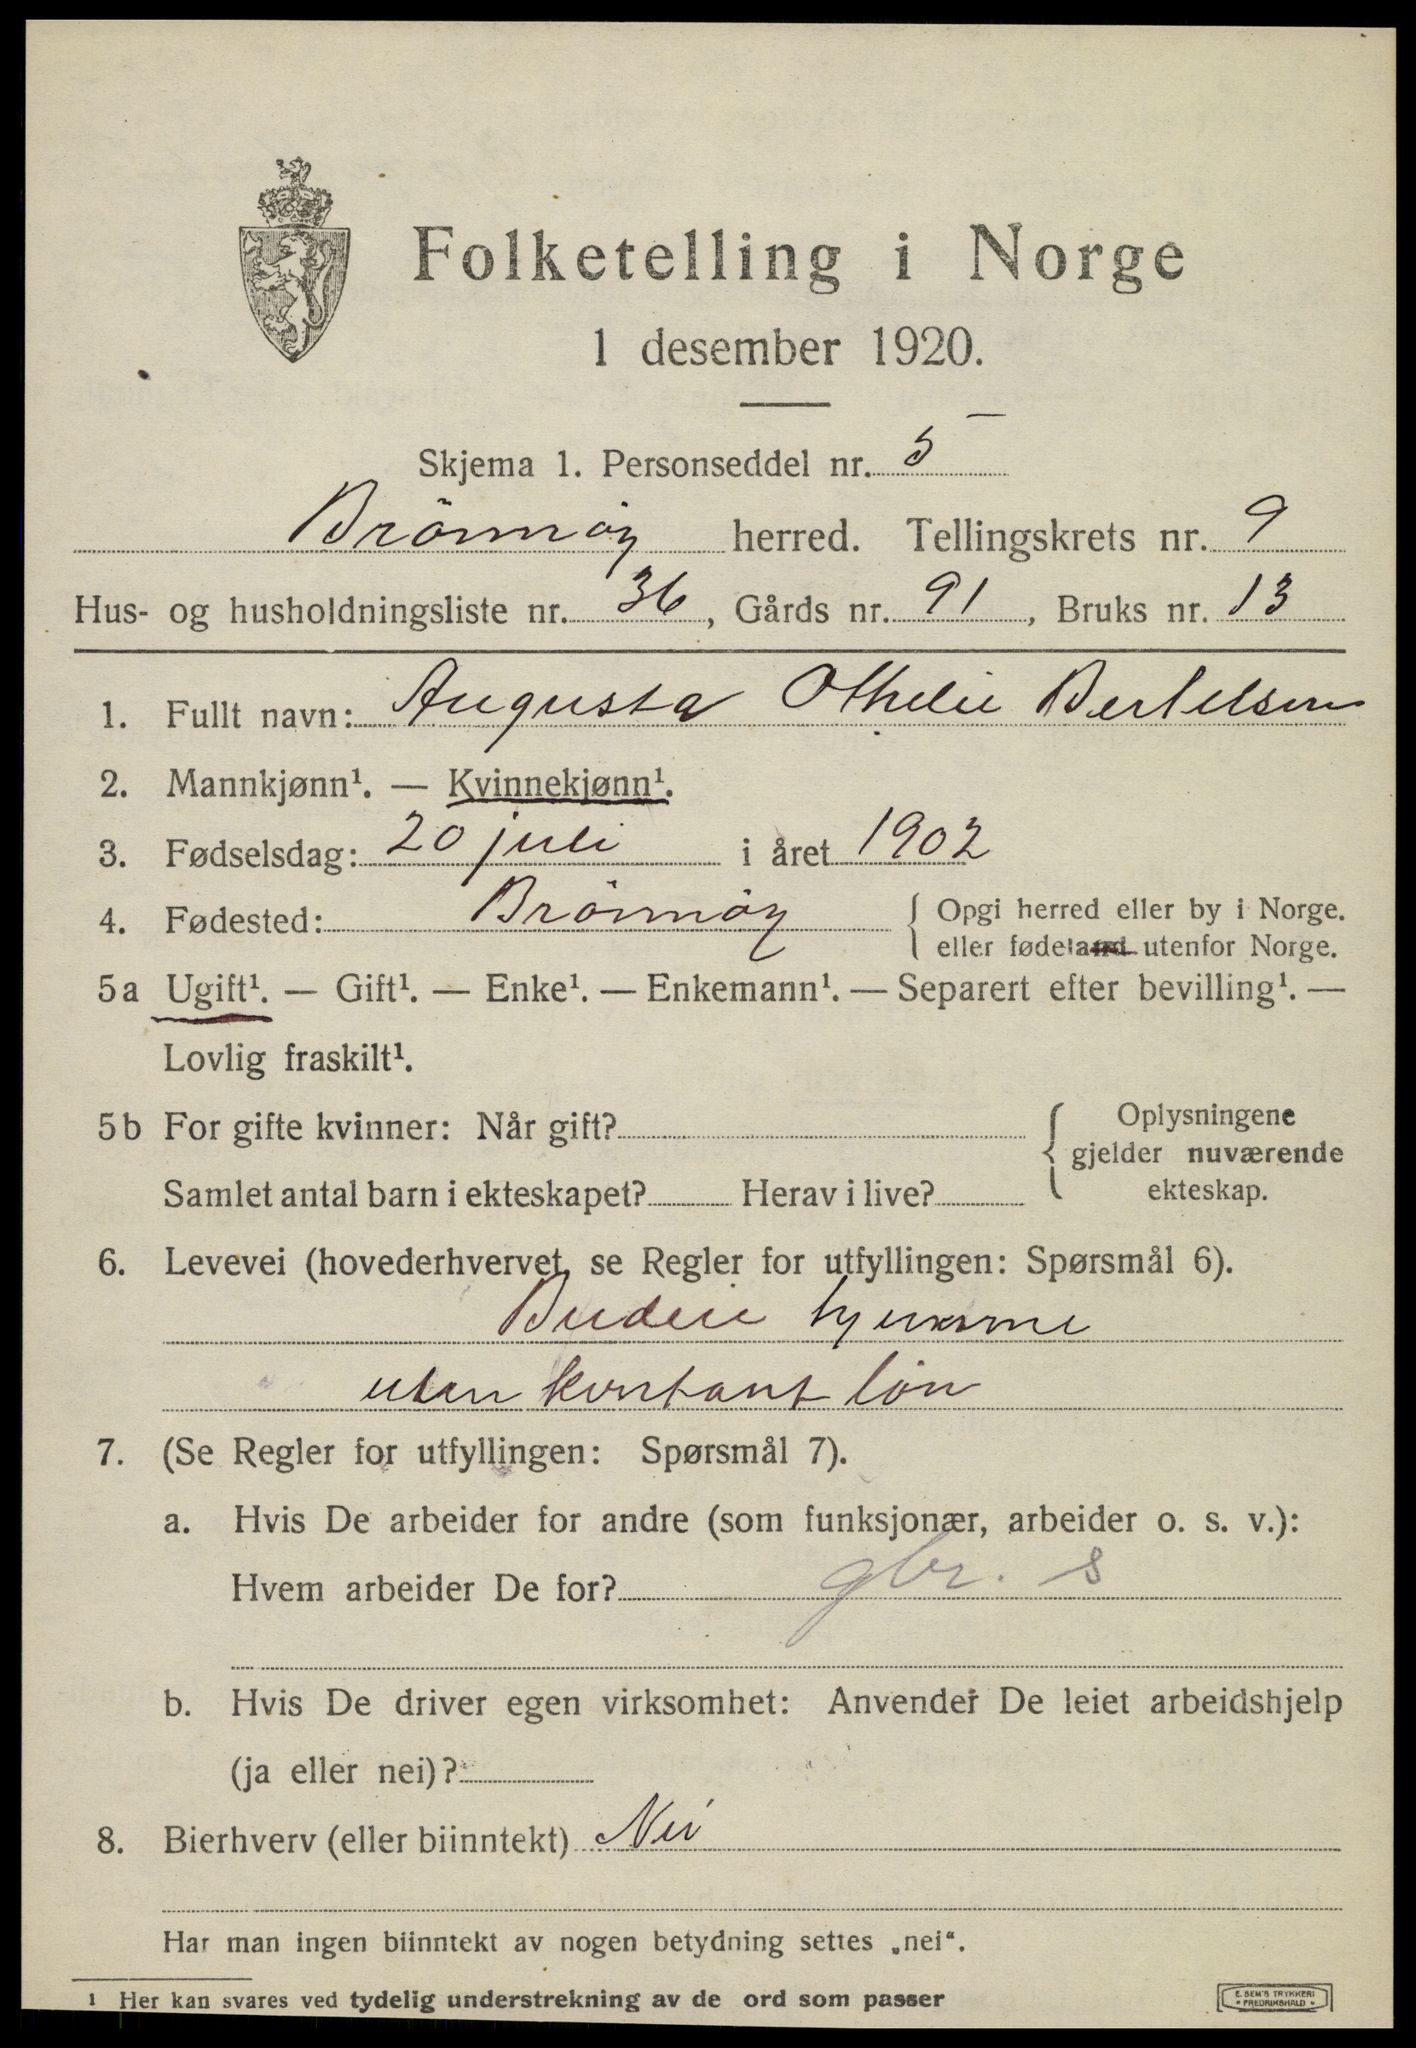 Folketelling i Norge
1 desember 1920.
Skjema 1. Personseddel nr. 5
Brönnöy herred. Tellingskrets nr. 9
Hus- og husholdningsliste nr. 36, Gårds nr. 91, Bruks nr. 13
1. Fullt navn: Augusta Othelie Bertelsen
2. Mannkjønn¹. — Kvinnekjønn¹.
3. Fødselsdag: 20 juli i året 1902
4. Fødested: Brönnöy { Opgi herred eller by i Norge.
eller fødeland utenfor Norge.
5a Ugift¹. — Gift¹. — Enke¹. — Enkemann¹. — Separert efter bevilling¹. —
Lovlig fraskilt¹.
5b For gifte kvinner: Når gift? { Oplysningene
gjelder nuværende
Samlet antal barn i ekteskapet? Herav i live? ekteskap.
6. Levevei (hovederhvervet, se Regler for utfyllingen: Spørsmål 6).
Budeie hjemme
uten kontant løn
7. (Se Regler for utfyllingen: Spørsmål 7).
a. Hvis De arbeider for andre (som funksjonær, arbeider o. s. v.):
Hvem arbeider De for? gbr. s
b. Hvis De driver egen virksomhet: Anvender De leiet arbeidshjelp
(ja eller nei)?
8. Bierhverv (eller biinntekt) Nei
Har man ingen biinntekt av nogen betydning settes „nei“.
1 Her kan svares ved tydelig understrekning av de ord som passer
E. SEM'S TRYKKERI
* FREDRIKSHALD *